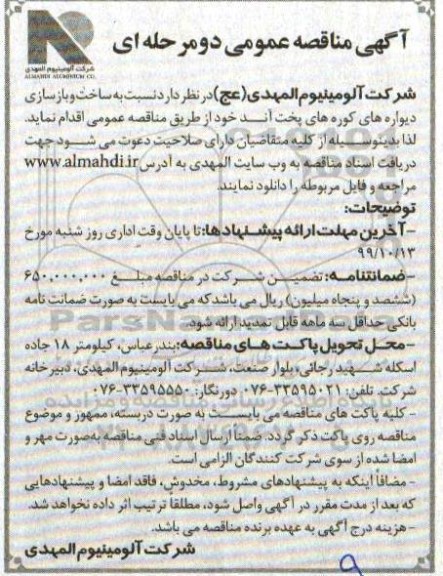 آگهی مناقصه عمومی دومرحله ای
شرکت آلومینیوم المهدی
ALMAHDI ALUMINIUM CO.
شرکت آلومینیوم المهدی(عج)در نظر دارد نسبت به ساخت و بازسازی
دیواره های کوره های پخت آند خود از طریق مناقصه عمومی اقدام نماید.
لذا بدینوسیله از کلیه متقاضیان دارای صلاحیت دعوت می شود جهت
دریافت اسناد مناقصه به وب سایت المهدی به آدرس www.almahdi.ir
مراجعه و فایل مربوطه را دانلود نمایند.
توضیحات:
-آخرین مهلت ارائه پیشنهادها:تا پایان وقت اداری روز شنبه مورخ
۹۹/۱۰/۱۳
-ضمانتنامه: تضمین شرکت در مناقصه مبلغ ۶۵۰,۰۰۰,۰۰۰
(ششصد و پنجاه میلیون) ریال می باشد که می بایست به صورت ضمانت نامه
بانکی حداقل سه ماهه قابل تمدید ارائه شود.
-محل تحویل پاکت های مناقصه:بندرعباس، کیلومتر ۱۸ جاده
اسکله شهید رجائی، بلوار صنعت، شرکت آلومینیوم المهدی، دبیرخانه
شرکت. تلفن: ۳۳۵۹۵۰۲۱-۰۷۶ دورنگار: ۳۳۵۹۵۵۵۰-۰۷۶
- کلیه پاکت های مناقصه می بایست به صورت دربسته، ممهور و موضوع
مناقصه روی پاکت ذکر گردد. ضمنا ارسال اسناد فنی مناقصه به صورت مهر و
امضا شده از سوی شرکت کنندگان الزامی است.
- مضافاً اینکه به پیشنهادهای مشروط، مخدوش، فاقد امضا و پیشنهادهایی
که بعد از مدت مقرر در آگهی واصل شود، مطلقاً ترتیب اثر داده نخواهد شد.
-هزینه درج آگهی به عهده برنده مناقصه می باشد.
شرکت آلومینیوم المهدی
۹